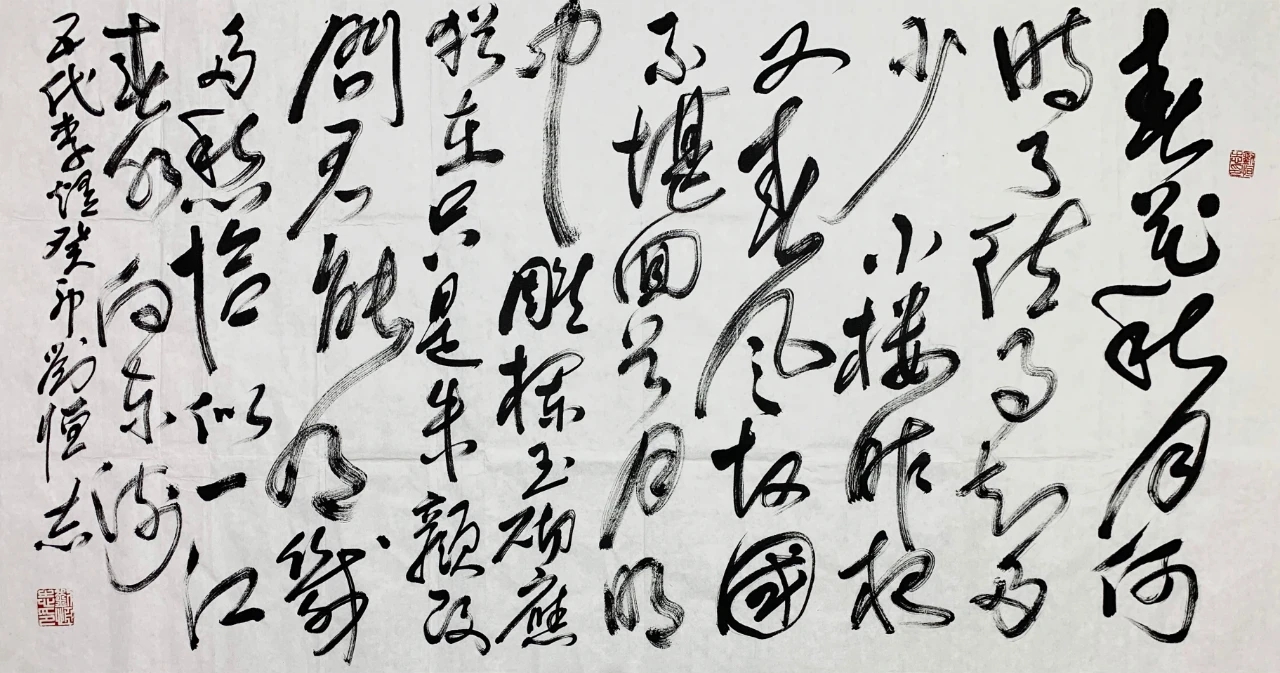 春花秋月何
时了往事知多
少小樓昨夜
又春风故國
不堪回首月明
中雕栏玉砌應
猶在只是朱顏改
問君能有幾
多愁恰似一江
春水向东流
五代李煜癸卯劉恒志